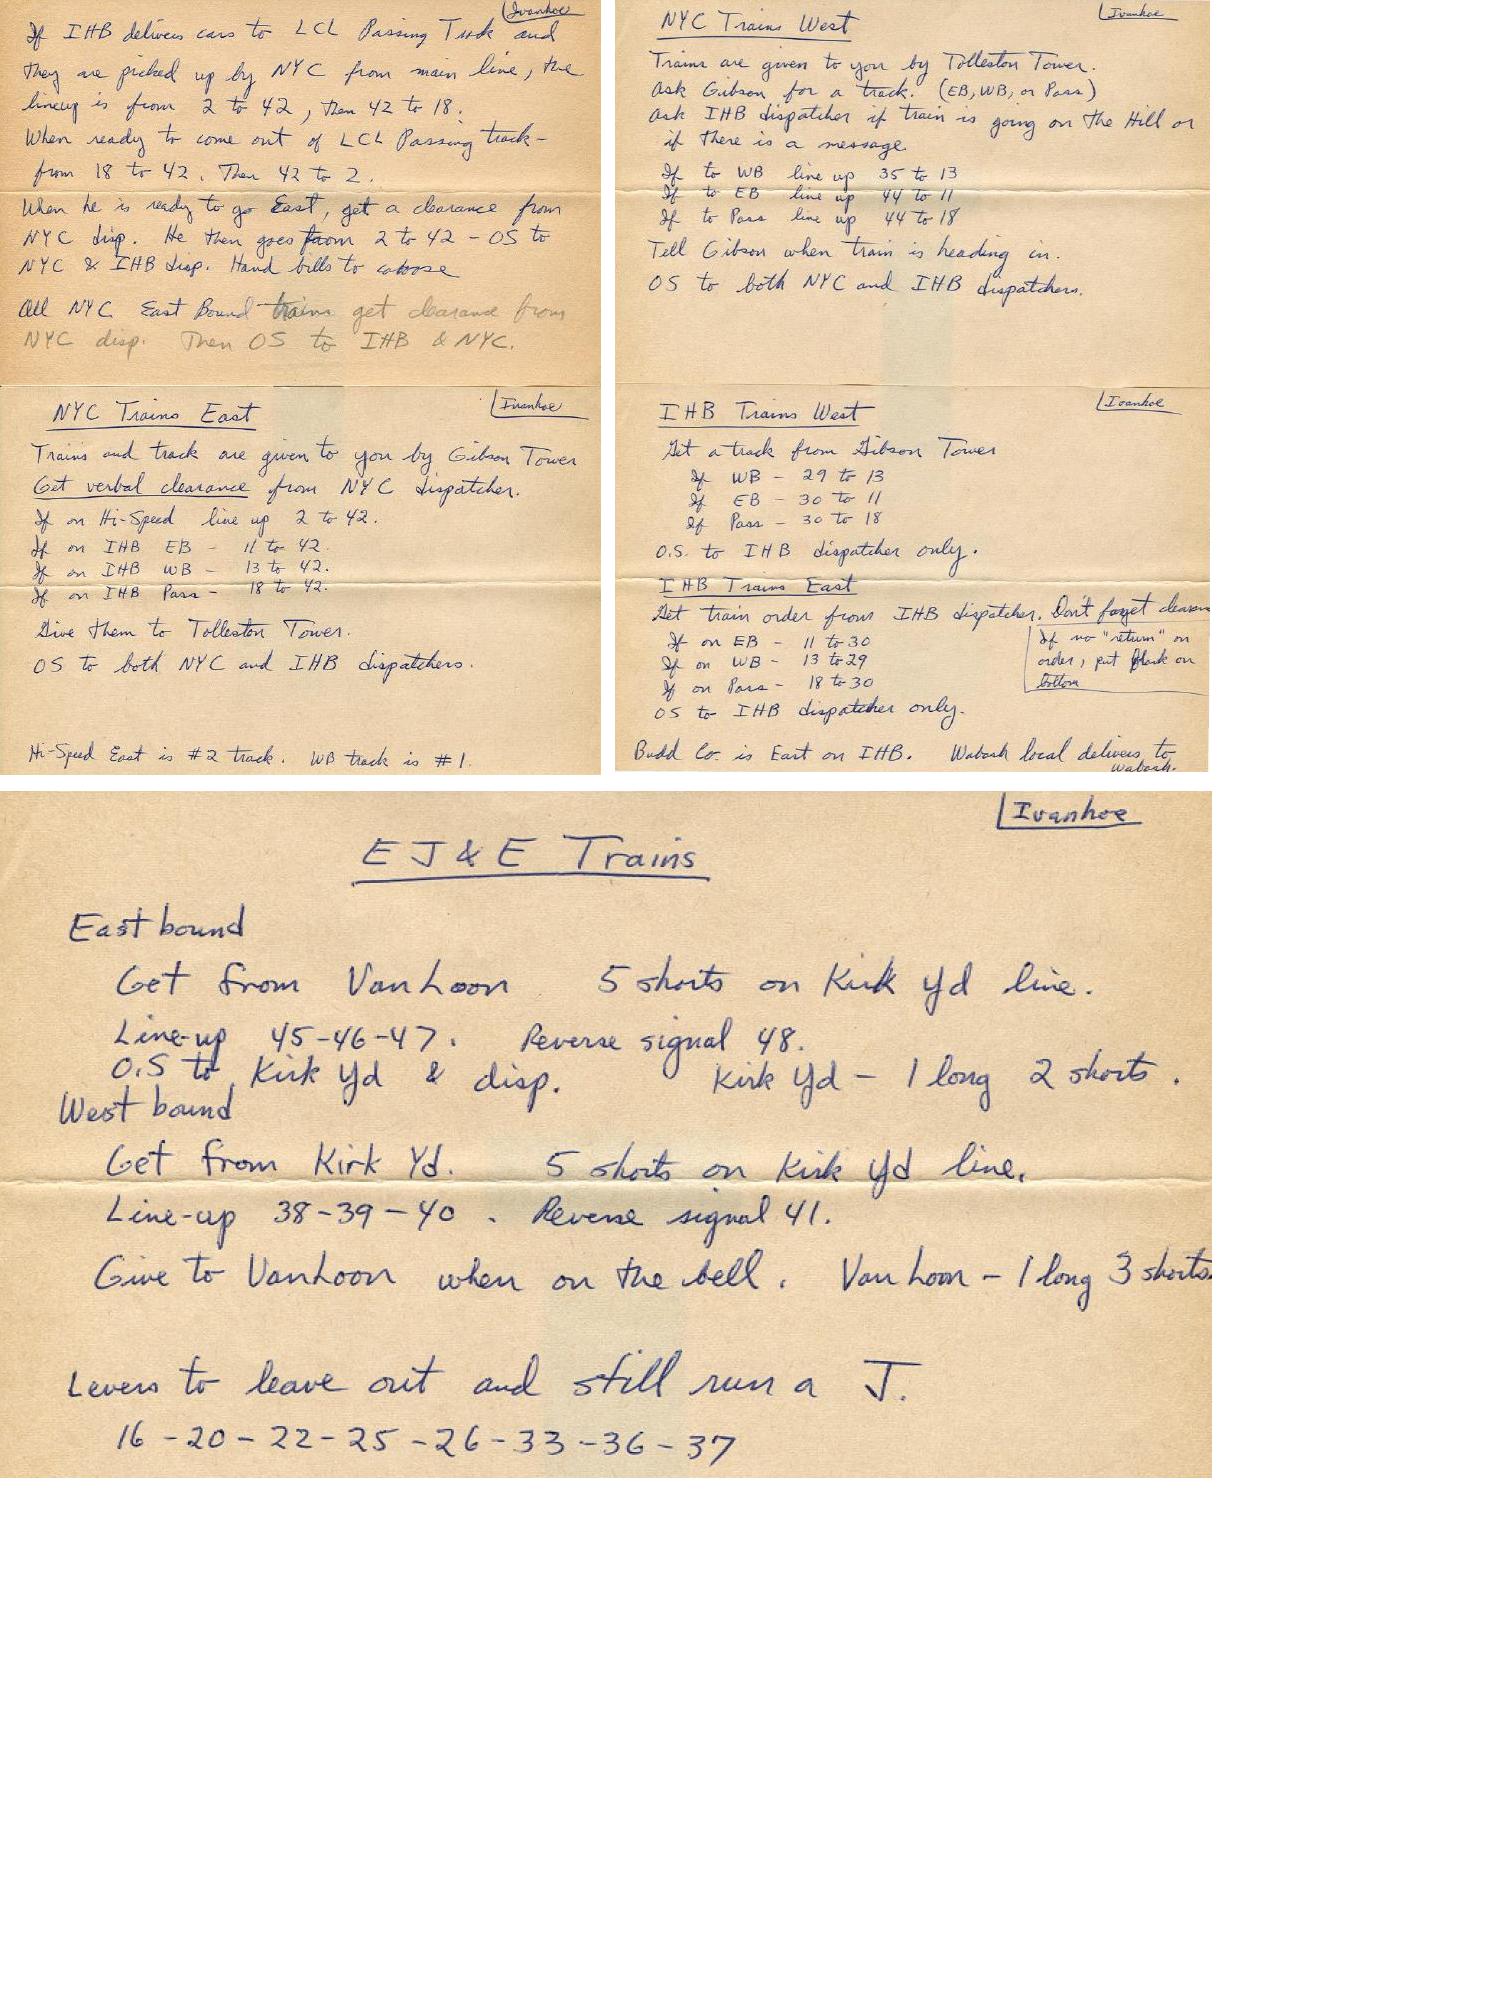 Ivanhoe
If IHB delivers cars to LCL Passing Track and
they are picked up by NYC from main line, the
lineup is from 2 to 42, then 42 to 18.
When ready to come out of LCL Passing track-
from 18 to 42. Then 42 to 2.
When he is ready to go East, get a clearance from
NYC disp. He then goes from 2 to 42 - OS to
NYC & IHB disp. Hand bills to caboose
All NYC East Bound trains get clearance from
NYC disp. Then OS to IHB & NYC.
Ivanhoe
NYC Trains East
Trains and track are given to you by Gibson Tower
Get verbal clearance from NYC dispatcher.
If on Hi-Speed line up 2 to 42.
If on IHB EB - 11 to 42.
If on IHB WB - 13 to 42.
If on IHB Pass - 18 to 42.
Give them to Tolleston Tower.
OS to both NYC and IHB dispatchers.
Hi-Speed East is #2 track. WB track is #1.
Ivanhoe
NYC Trains West
Trains are given to you by Tolleston Tower.
Ask Gibson for a track. (EB, WB, or Pass)
Ask IHB dispatcher if train is going on the Hill or
if there is a message
If to WB line up 35 to 13
If to EB line up 44 to 11
If to Pass line up 44 to 18
Tell Gibson when train is heading in.
OS to both NYC and IHB dispatchers.
Ivanhoe
IHB Trains West
Get a track from Gibson Tower
If WB - 29 to 13
If EB - 30 to 11
If Pass - 30 to 18
O.S. to IHB dispatcher only.
IHB Trains East
Get train order from IHB dispatcher. Don't forget
If on EB - 11 to 30
If on WB - 13 to 29
If on Pass - 18 to 30
If no "return" on
order, put on
bottom
OS to IHB dispatcher only.
Budd Co. is East on IHB. Wabash local delivers to
Wabash.
Ivanhoe
EJ&E Trains
Eastbound
Get from VanLoon 5 shorts on Kirk Yd line.
Line-up 45-46-47. Reverse signal 48.
O.S to Kirk Yd & disp. Kirk Yd - 1 long 2 shorts.
Westbound
Get from Kirk Yd. 5 shorts on Kirk Yd line.
Line-up 38-39-40. Reverse signal 41.
Give to VanLoon when on the bell. Van Loon - 1 long 3 shorts.
Levers to leave out and still run a J.
16-20-22-25-26-33-36-37